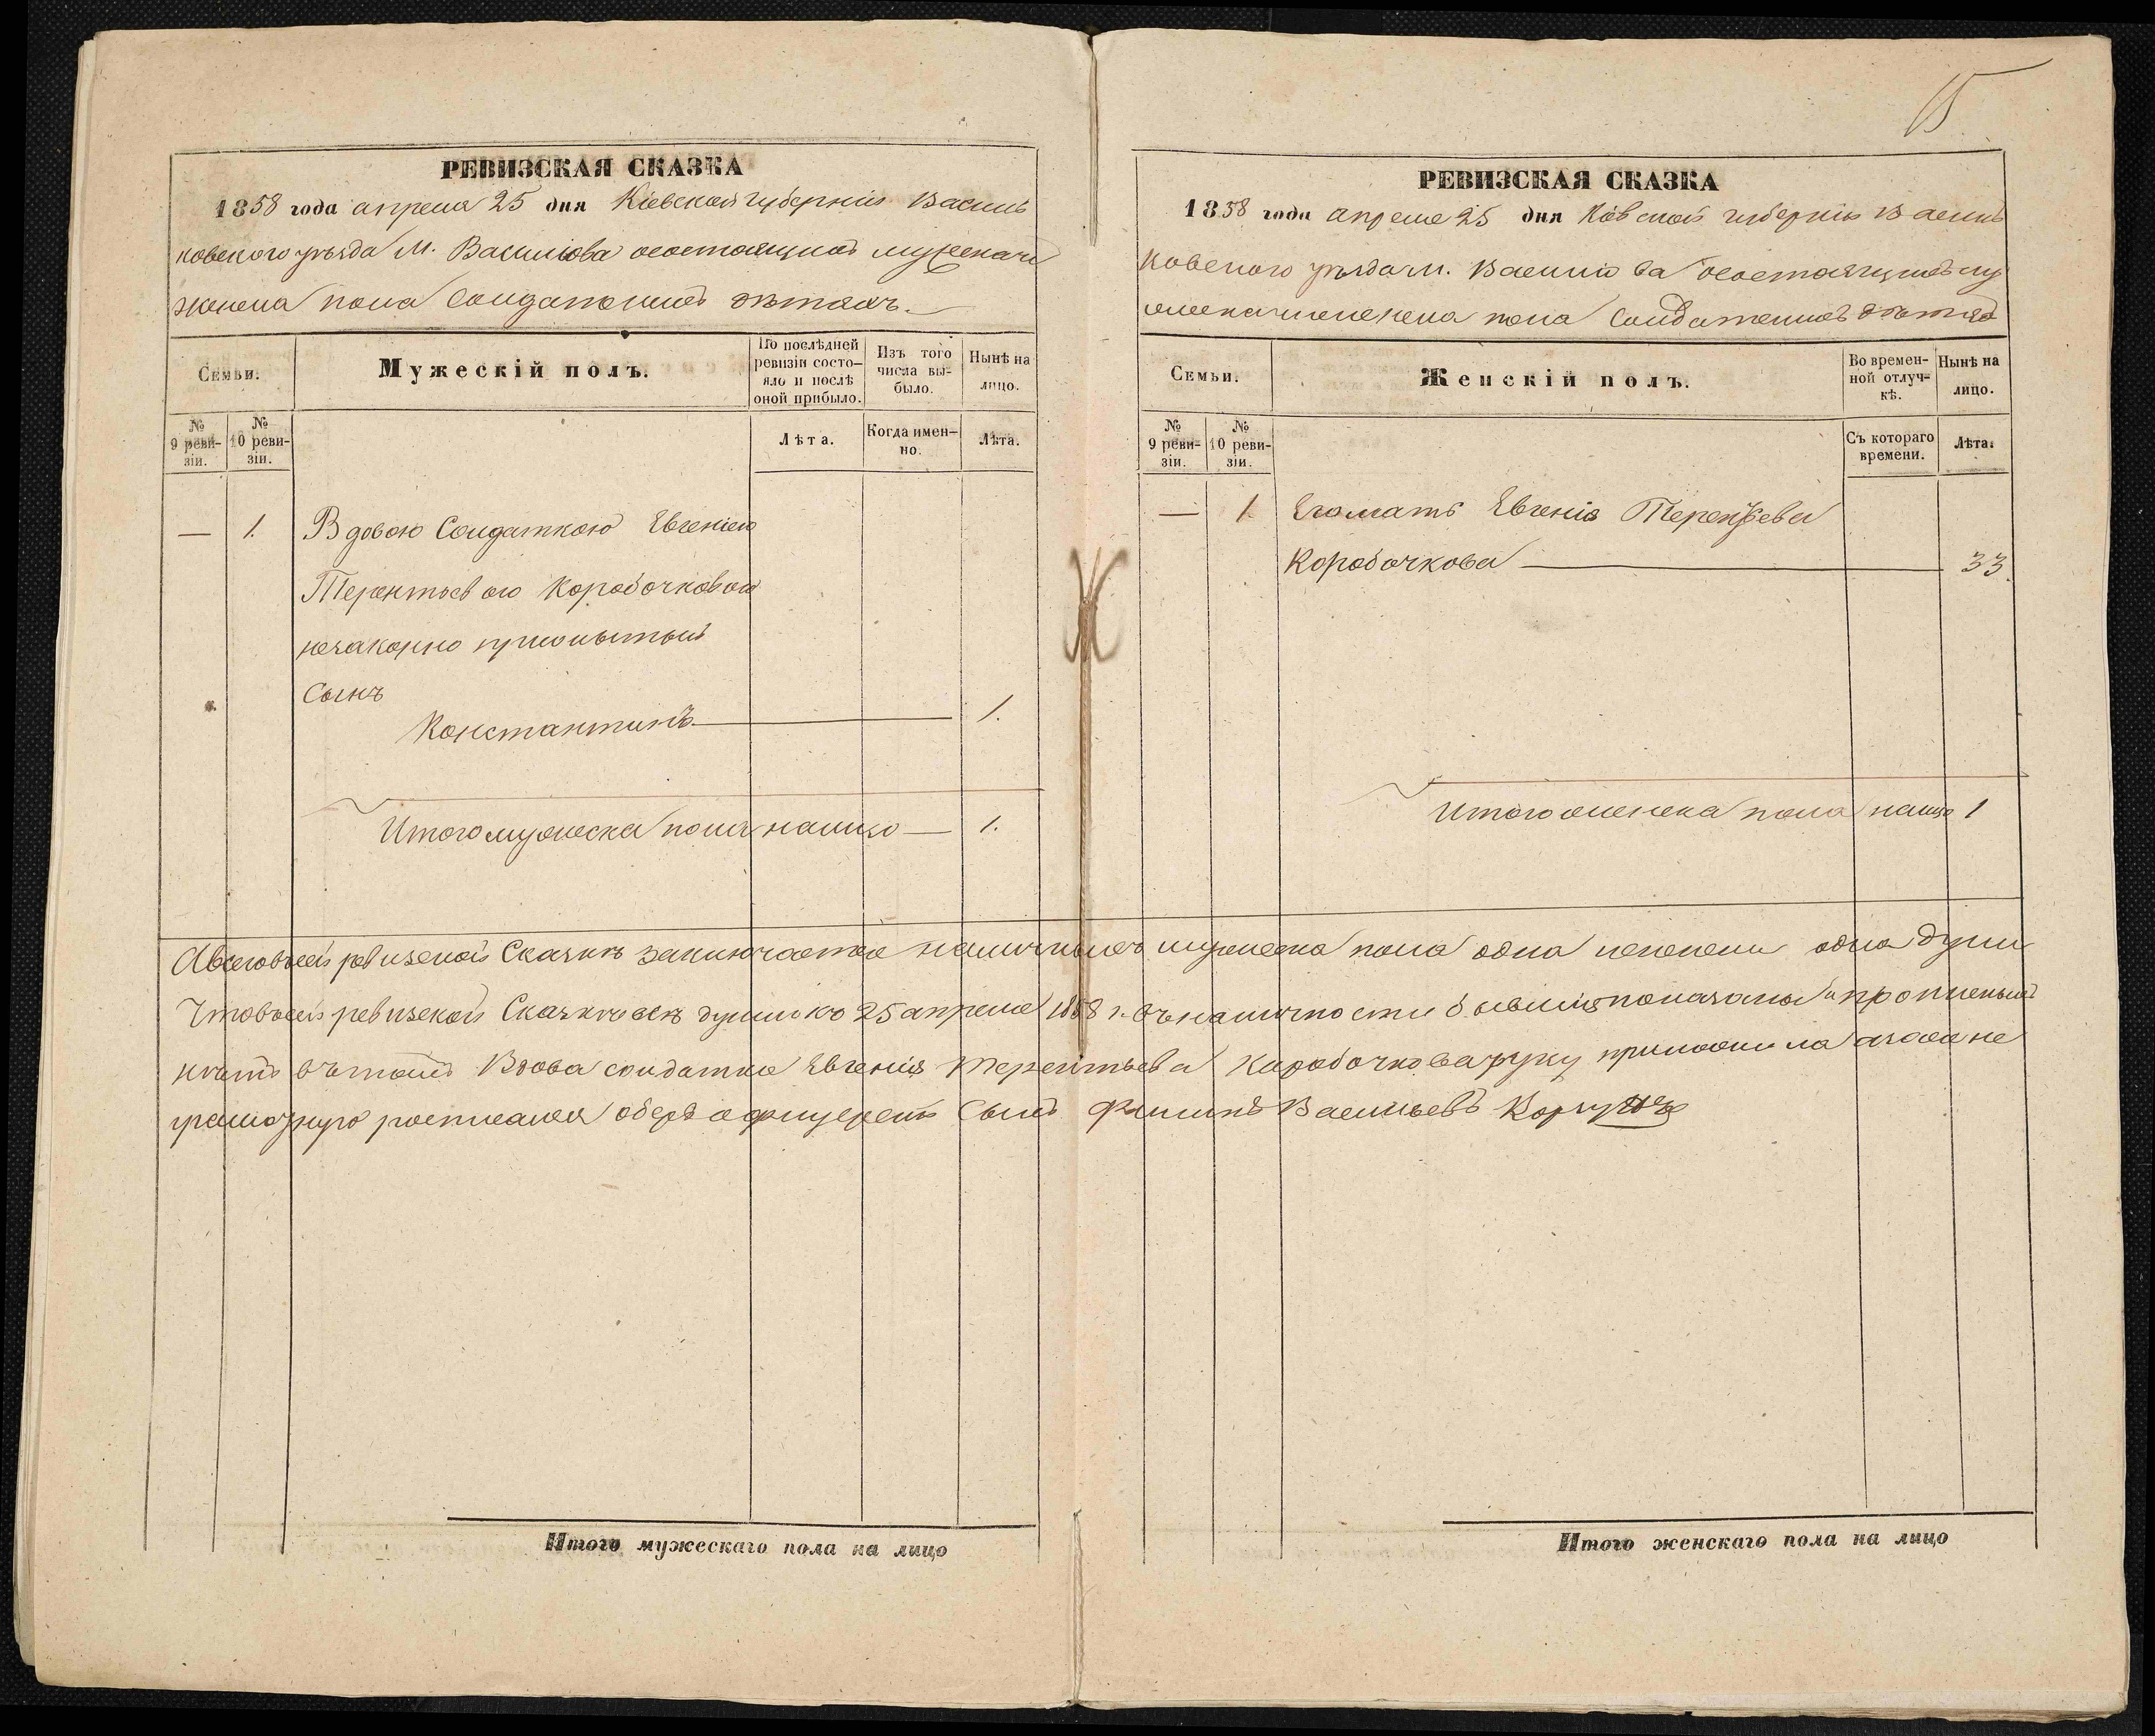 15
РЕВИЗСКАЯ СКАЗКА
1858 года апреля 25 дня Кіевской губерніи Василь
ковского уѣзда М. Василіова осостоящихъ мужеска и
женска пола Солдатскихъ дѣтяхъ.
Семьи.
Мужескій полъ.
По послѣдней ревизіи состо-
яло и послѣ оной прибыло.
Изъ того числа вы-
было.
Нынѣ на лицо.
№ 9 реви-
зіи.
№ 10 реви-
зіи.
Лѣта.
Когда имен-
но.
Лѣта.
— 1. Вдовою Солдаткою Евгеніею
Терентьевою Коробочковою
незаконно прижитый
Сынъ
Константинъ — 1.
Итого мужеска пола налицо — 1.
РЕВИЗСКАЯ СКАЗКА
1858 года апреля 25 дня Кіевской губерніи Василь
ковского уѣзда м. Василіова осостоящихъ му
жеска и женска пола Солдатскихъ дѣтяхъ
Семьи.
Женскій полъ.
Во времен-
ной отлуч-
кѣ.
Нынѣ на лицо.
№ 9 реви-
зіи.
№ 10 реви-
зіи.
Съ котораго времени.
Лѣта.
— 1. Егомать Евгенія Терентьева
Коробочкова — 33.
Итого женска пола налицо 1
Авсеговъсей ревизской Сказкѣ заключается наличныхъ мужеска пола одна и женска одна душа
Чтовъсей ревизской Сказкѣ всѣ души ко 25 апреля 1858 г. въ наличности бывшія показаны и прописныхъ
нѣтъ вътомъ Вдова солдатка Евгенія Терентьева Каробочкова руку приложила азаее не
грамотную росписался оберъ офицерскій Сынъ Филипъ Васильевъ
Итого мужескаго пола на лицо
Итого женскаго пола на лицо